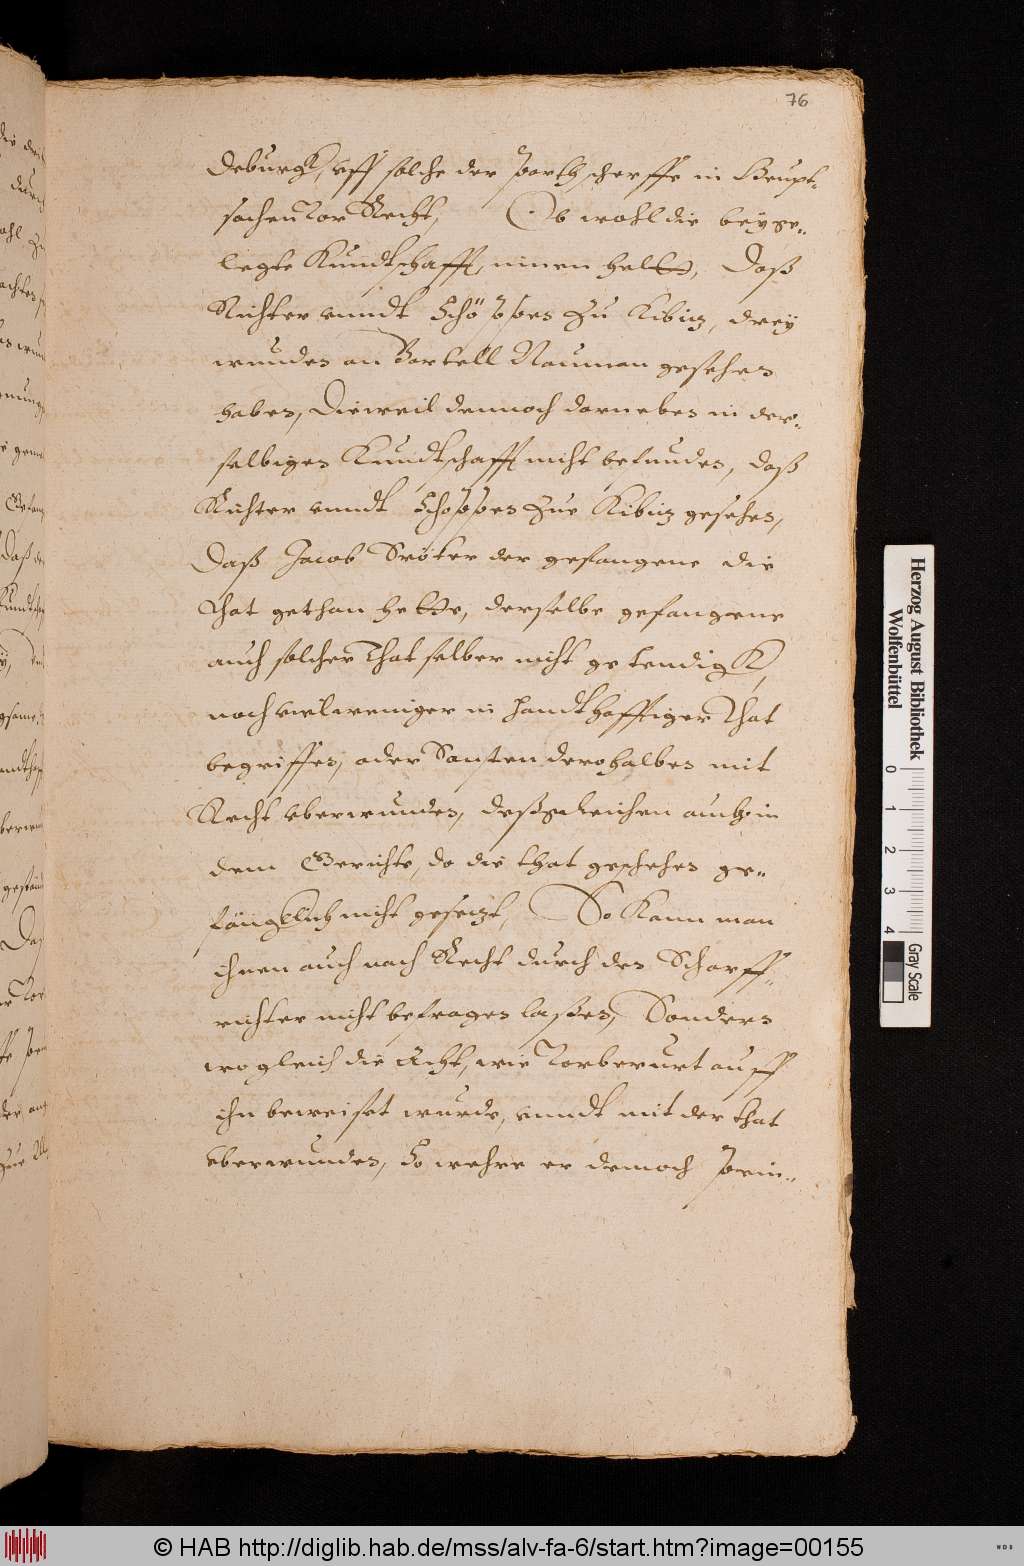 76
deburgk, vff solche der partt scherffe in Heupt-
sachen Vor Recht, Ob wohl die beyge-
legte Kundtschafft, innen helt, Daß
Richter vnndt Schöppen zu Kibitz, drey
wunden an Bartell Nauman gesehen
haben, Dieweil dennoch darneben in der-
selbigen Kundtschafft nicht befunden, daß
Richter vnndt Schoppen zue Kibitz gesehen,
Daß Jacob Kröker der gefangene die
That gethan hette, derselbe gefangene
auch solcher That selber nicht gestendigk,
noch viel weniger in handthafftiger That
begriffen, oder Sonsten derohalben mit
Recht vberwunden, deßgleichen auch in
dem Gerichte, do die that geschehen ge-
fängklich nicht gesetzt, So kann man
ihnen auch nach Recht durch den Scharff-
richter nicht befragen laßen, Sondern
wo gleich die Acht, wie Vorberurt auff
ihn beweiset wurde, vnndt mit der that
vberwunden, So wehre er dennoch pein-
Herzog August Bibliothek
Wolfenbüttel
0 1 2 3 4
Gray Scale
© HAB http://diglib.hab.de/mss/alv-fa-6/start.htm?image=00155